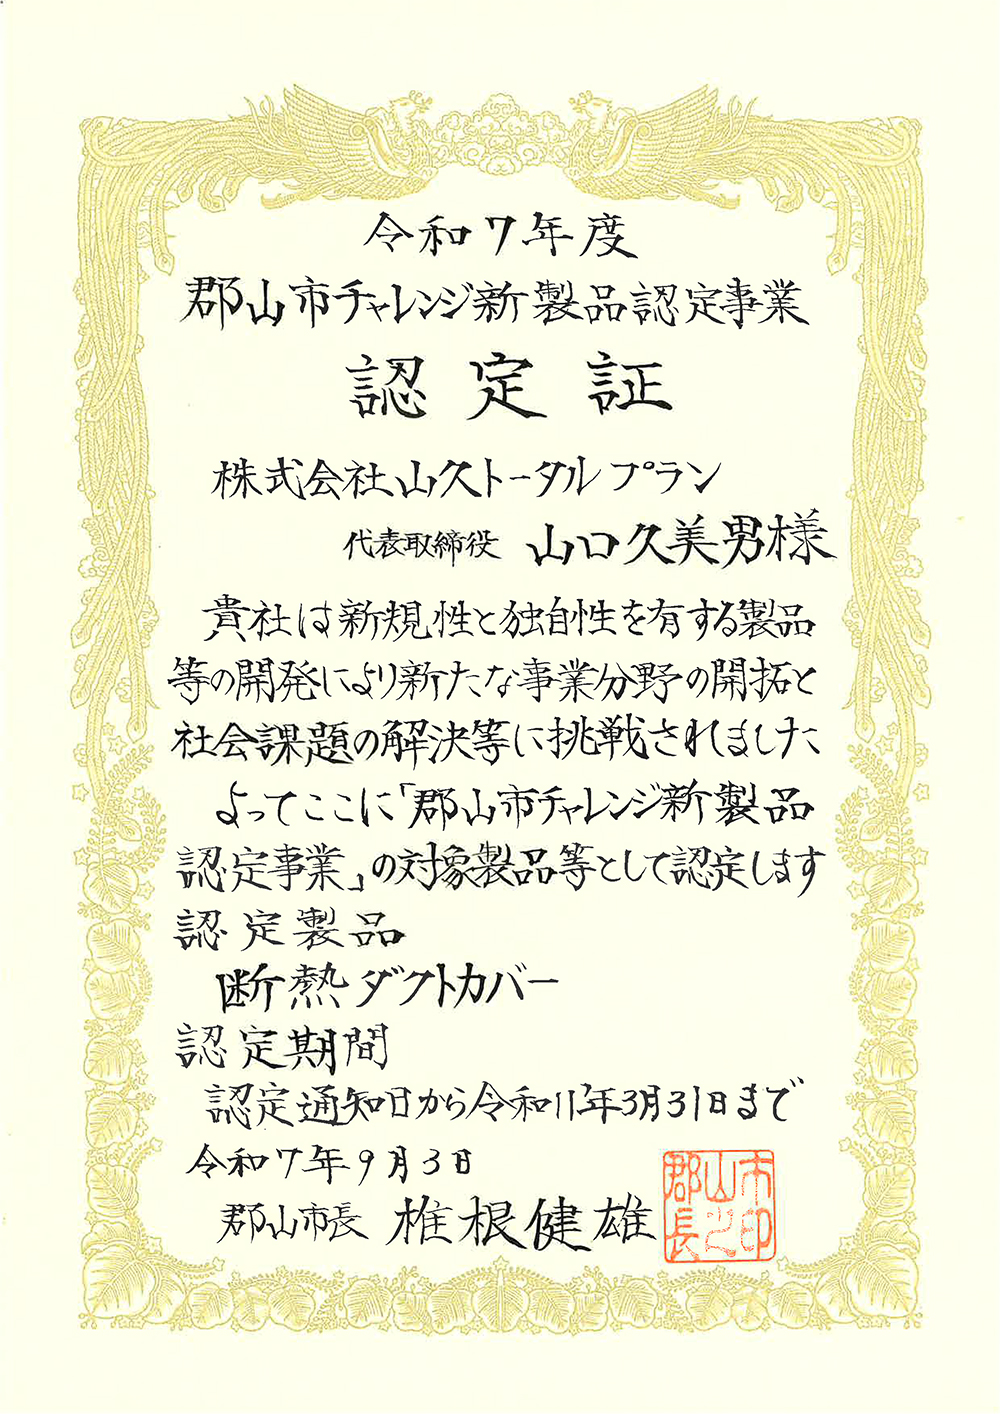 令和7年度
郡山市チャレンジ新製品認定事業
認定証
株式会社山久トータルプラン
代表取締役 山口久美男様
貴社は新規性と独自性を有する製品
等の開発により新たな事業分野の開拓と
社会課題の解決等に挑戦されました
よってここに「郡山市チャレンジ新製品
認定事業」の対象製品等として認定します
認定製品
断熱ダクトカバー
認定期間
認定通知日から令和11年3月31日まで
令和7年9月3日
郡山市長 椎根健雄
郡山市長之印